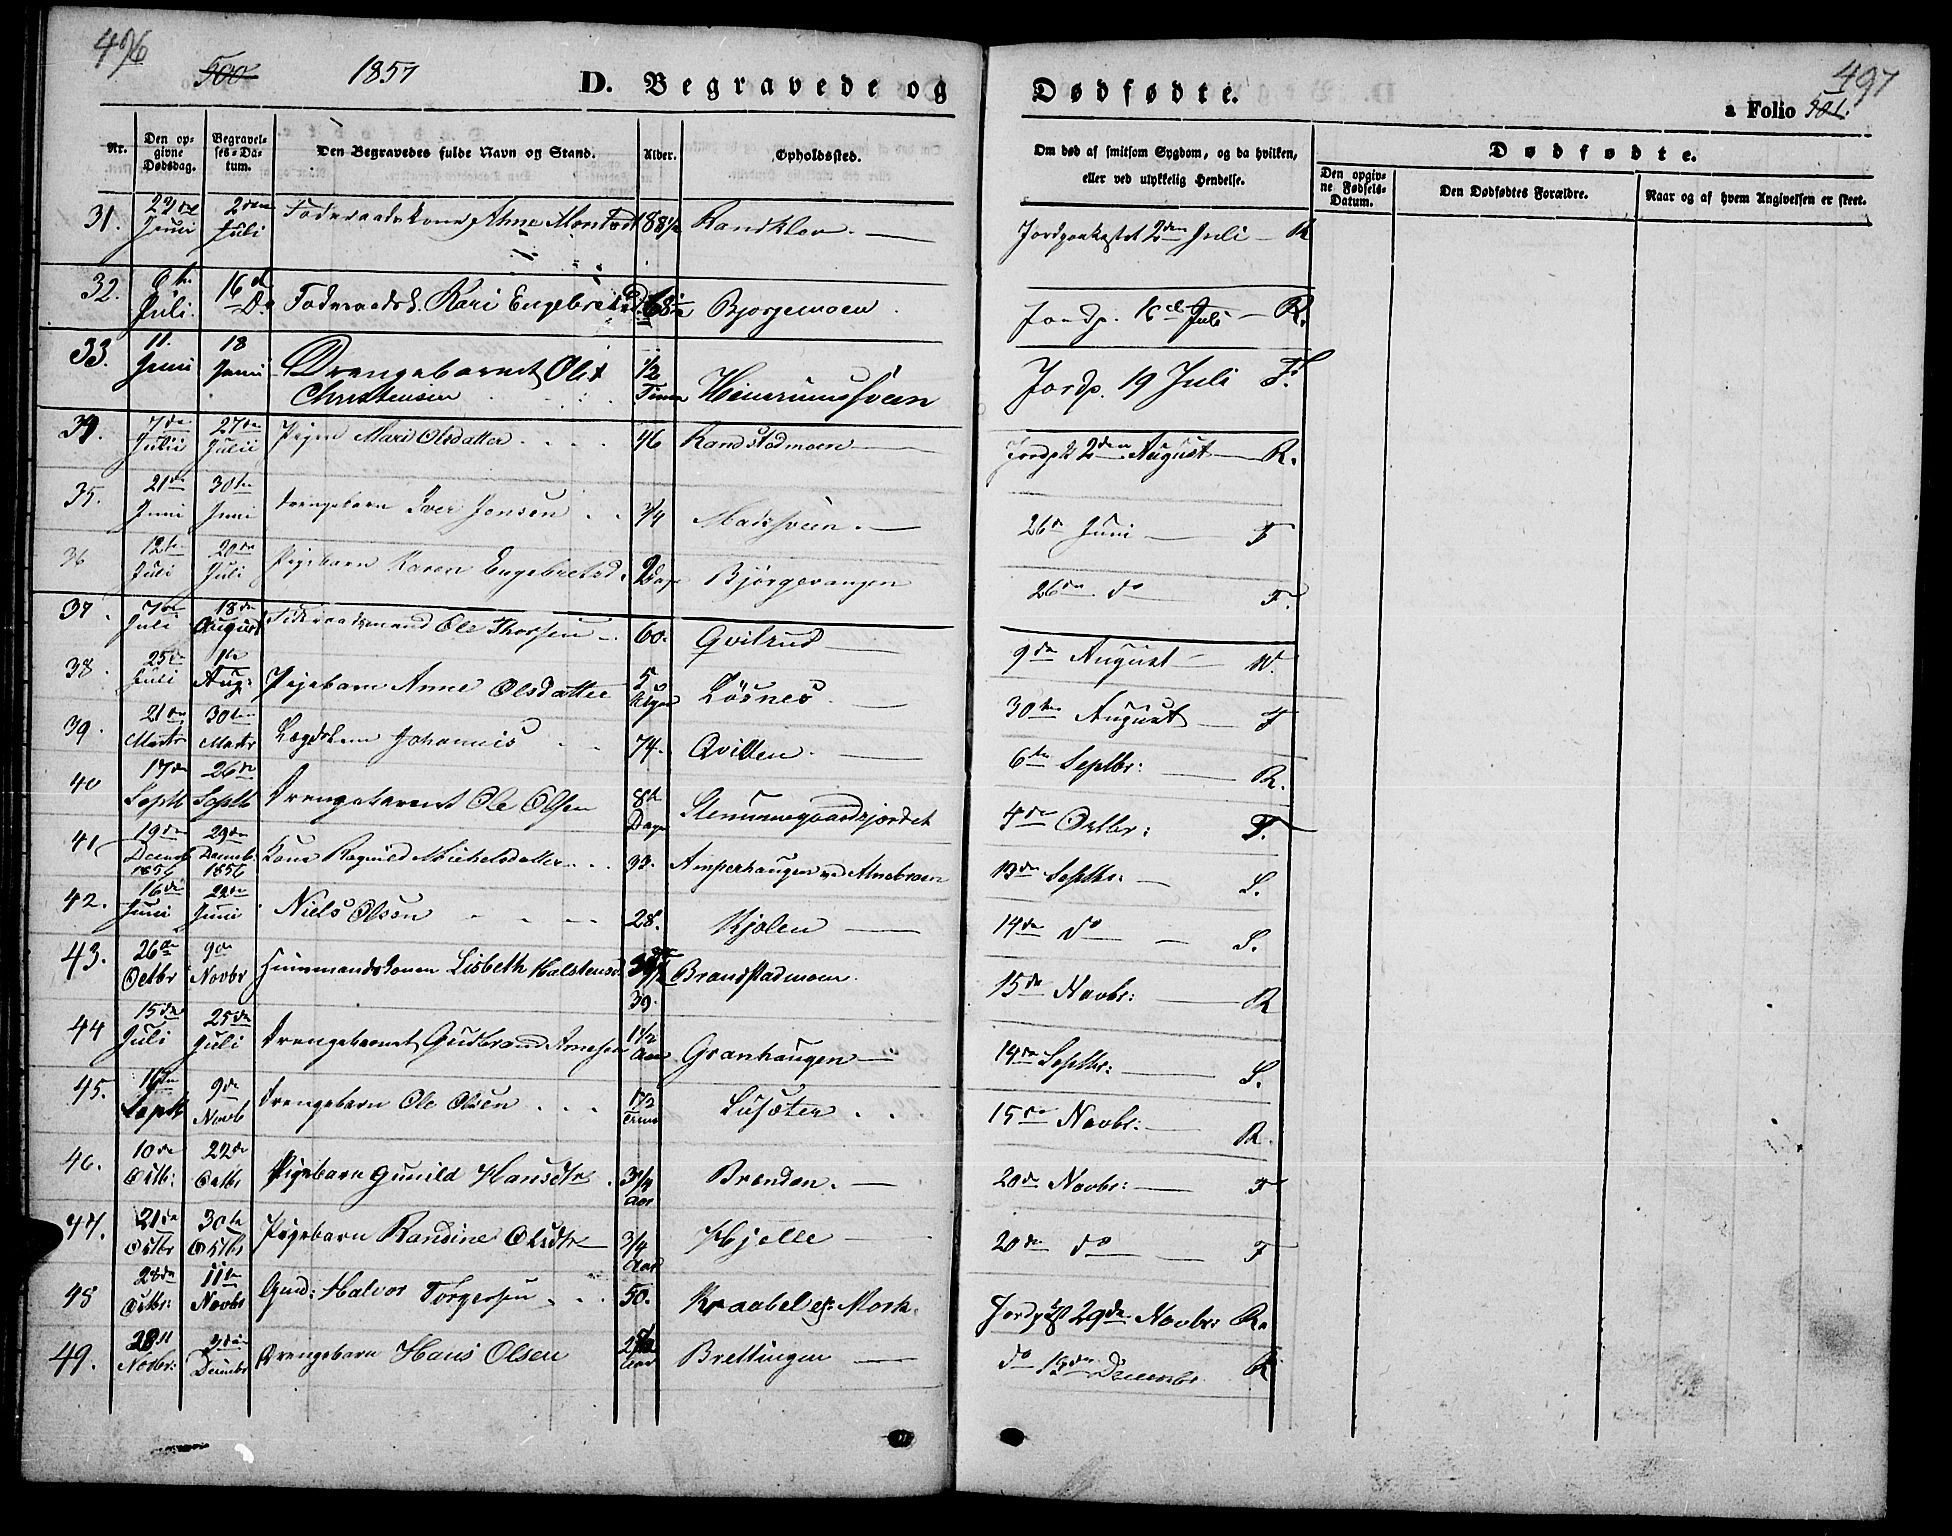 496
500
1857
D. Begravede og
Nr.
Den opgivne Dødsdag.
Begravelses-Datum.
Den Begravedes fulde Navn og Stand.
Alder.
Opholdssted.
Dødfødte.
497
a Folio 501.
Om død af smitsom Sygdom, og da hvilken, eller ved ulykkelig Hendelse.
Dødfødte.
Den opgivne Fødsels-Datum.
Den Dødfødtes Forældre.
Naar og af hvem Angivelsen er skeet.
31. Juni 2den Juli Føderaadskone Anne 88½ Randklev. Jordpaakastet 2den Juli R
32. Juli 16d Do Føderaadsk. Kari Engebretsd. 68½ Bjørgemoen. Jordp. 16de Juli R.
33. 11. Juni 18 Juni Drengebarnet Ole Christensen ½ Time Jordp. 19 Juli F.
34. 7de Julii 27de Julii Pigen Mari Olsdatter 46 Randstadmoen Jordpk 2den August R.
35. 21de Juni 30te Juni Drengebarn Iver Jonsen ¾ Madssveen. 26de Juni F
36 12te Juli 20de Juli Pigebarn Karen Engebretsd. 2 Dage Bjørgevangen 26de do F.
37. 7de Juli 18de August Føderaadsmand Ole Thorsen 60. Qvilrud 9de August W.
38. 25de Juli 1te Aug: Pigebarn Anne Olsdatter 5 Uger Løsnes. 30te August F
39. 21de Marts 30te Marts Lægdslem Johannes 74. Qvitten. 6te Septbr: R.
40 17de Septb 26de Septb Drengebarnet Ole Olsen 8te Dage 4de Octbr: F.
41. 19de Decemb 1856 29de Decemb. 1856 Kone Ragnild Michelsdatter 33. Amperhaugen 13de Septbr: S.
42. 16de Juni 22de Juni Niels Olsen 28. Kjølen 14de do S.
43. 26de Octbr 9de Novbr Huusmandskonen Lisbeth Halstensd. 39. Brandstadmoen. 15de Novbr: R
44 15de Juli 25de Juli Drengebarnet Gudbrand Arnesen 1½ Aar Granhaugen 14de Septbr: S.
45. Septb 9de Novb Drengebarn Ole Olsen 1½ Time Lusæter 15de Novbr: R.
46. 10de Octb: 22de Octbr Pigebarn Gunild Hansdtr 3¼ Aar Brenden. 20de Novbr: F
47. 21de Octbr 30te Octbr Pigebarn Randine Olsdtr ¾ Aar Hjelle 20de do F
48 28de Octbr: 11te Novbr Gmd: Halvor Torgersen 50. Kraabel Jordpk 29de Novbr: R.
49. 28 Novbr: Decembr Drengebarn Hans Olsen Aar Brettingen do 13de Decembr R